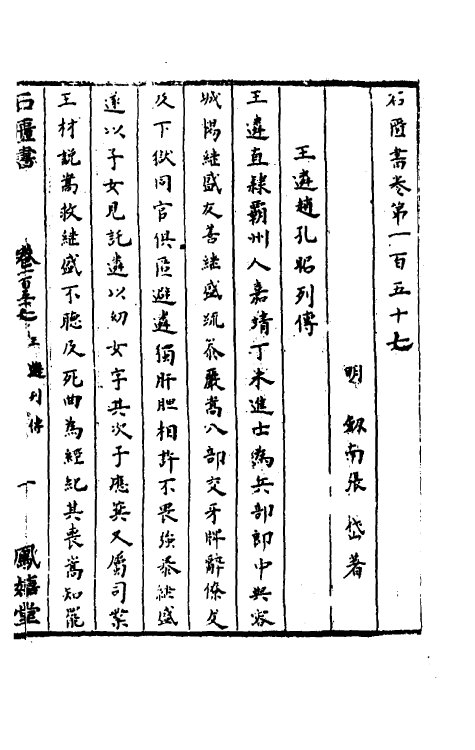 石匱書卷第一百五十七
明 劔南張 岱著
王遴趙孔昭列傳
王遴直隸霸州人嘉靖丁未進士為兵部郎中與容
城楊繼盛友善繼盛疏叅嚴嵩入部交牙牌辭僚友
及下獄同官俱匿避遴獨肝胆相許不畏強禦繼盛
遂以子女見託遴以幼女字其次子應箕又屬司業
王材説嵩救繼盛不聽及死曲為經紀其喪嵩知罷
石匱書 卷一百五十七 王遴列傳 鳳嬉堂